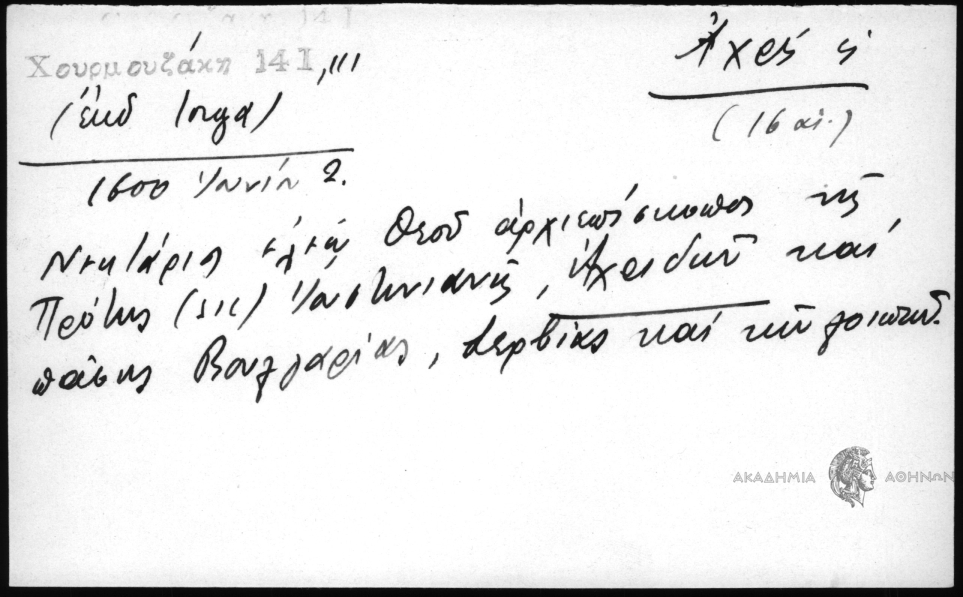 Χουρμουζάκη 14 I, 111
(ἐκδ Iorga)
Ἀχρίς ἡ
(16 αἰ.)
1600 Ἰουνίου 2.
Νεκτάριος ἐλέῳ Θεοῦ ἀρχιεπίσκοπος τῆς
Πρότης (sic) Ἰουστινιανῆς, Ἀχριδῶν καί
πάσης Βουλγαρίας, Σερβίας καί τῶν λοιπῶν.
ΑΚΑΔΗΜΙΑ ΑΘΗΝΩΝ